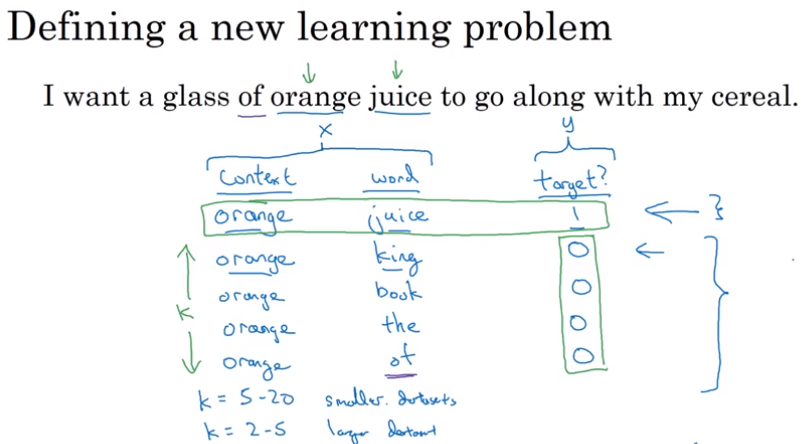 Defining a new learning problem
I want a glass of orange juice to go along with my cereal.
x y
Context word target?
orange juice 1
orange king 0
orange book 0
orange the 0
orange of 0
k
k = 5-20 smaller datasets
k = 2-5 larger dataset